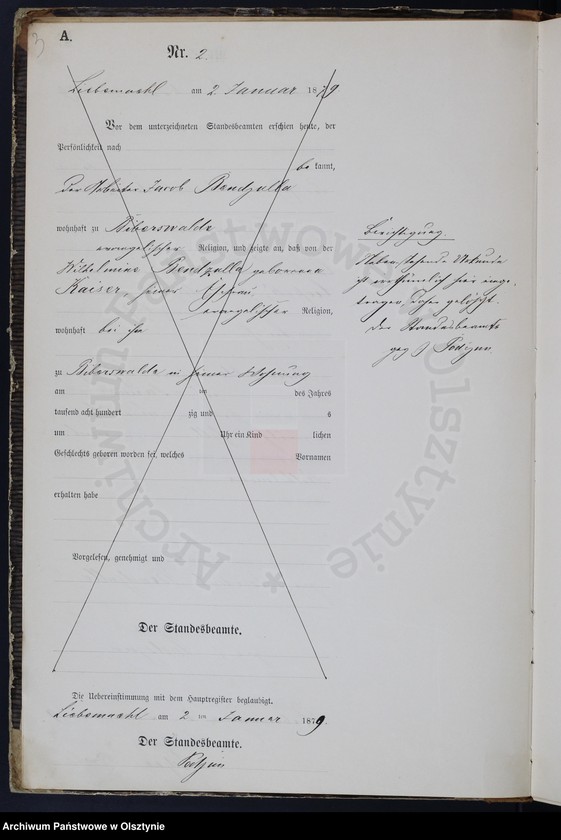 3
A.
Nr. 2.
Liebemühl am 2 Januar 1879
Vor dem unterzeichneten Standesbeamten erschien heute, der
Persönlichkeit nach
be kannt,
der Arbeiter Jacob Bendzulla
wohnhaft zu Biberswalde
evangelischer Religion, und zeigte an, daß von der
Wilhelmine Bendzulla geborenen
Kaiser, seiner Ehefrau
evangelischer Religion,
wohnhaft bei ihm
zu Biberswalde in seiner Wohnung
am ten des Jahres
tausend acht hundert zig und s
um Uhr ein Kind lichen
Geschlechts geboren worden sei, welches Vornamen
erhalten habe
Vorgelesen, genehmigt und
Der Standesbeamte.
Die Uebereinstimmung mit dem Hauptregister beglaubigt.
Liebemühl am 2 ten Januar 1879.
Der Standesbeamte.
Berichtigung.
Nebenstehende Urkunde
ist irrthümlich hier einge-
tragen, daher gelöscht.
Der Standesbeamte
gez
Archiwum Państwowe w Olsztynie
Archiwum Państwowe w Olsztynie